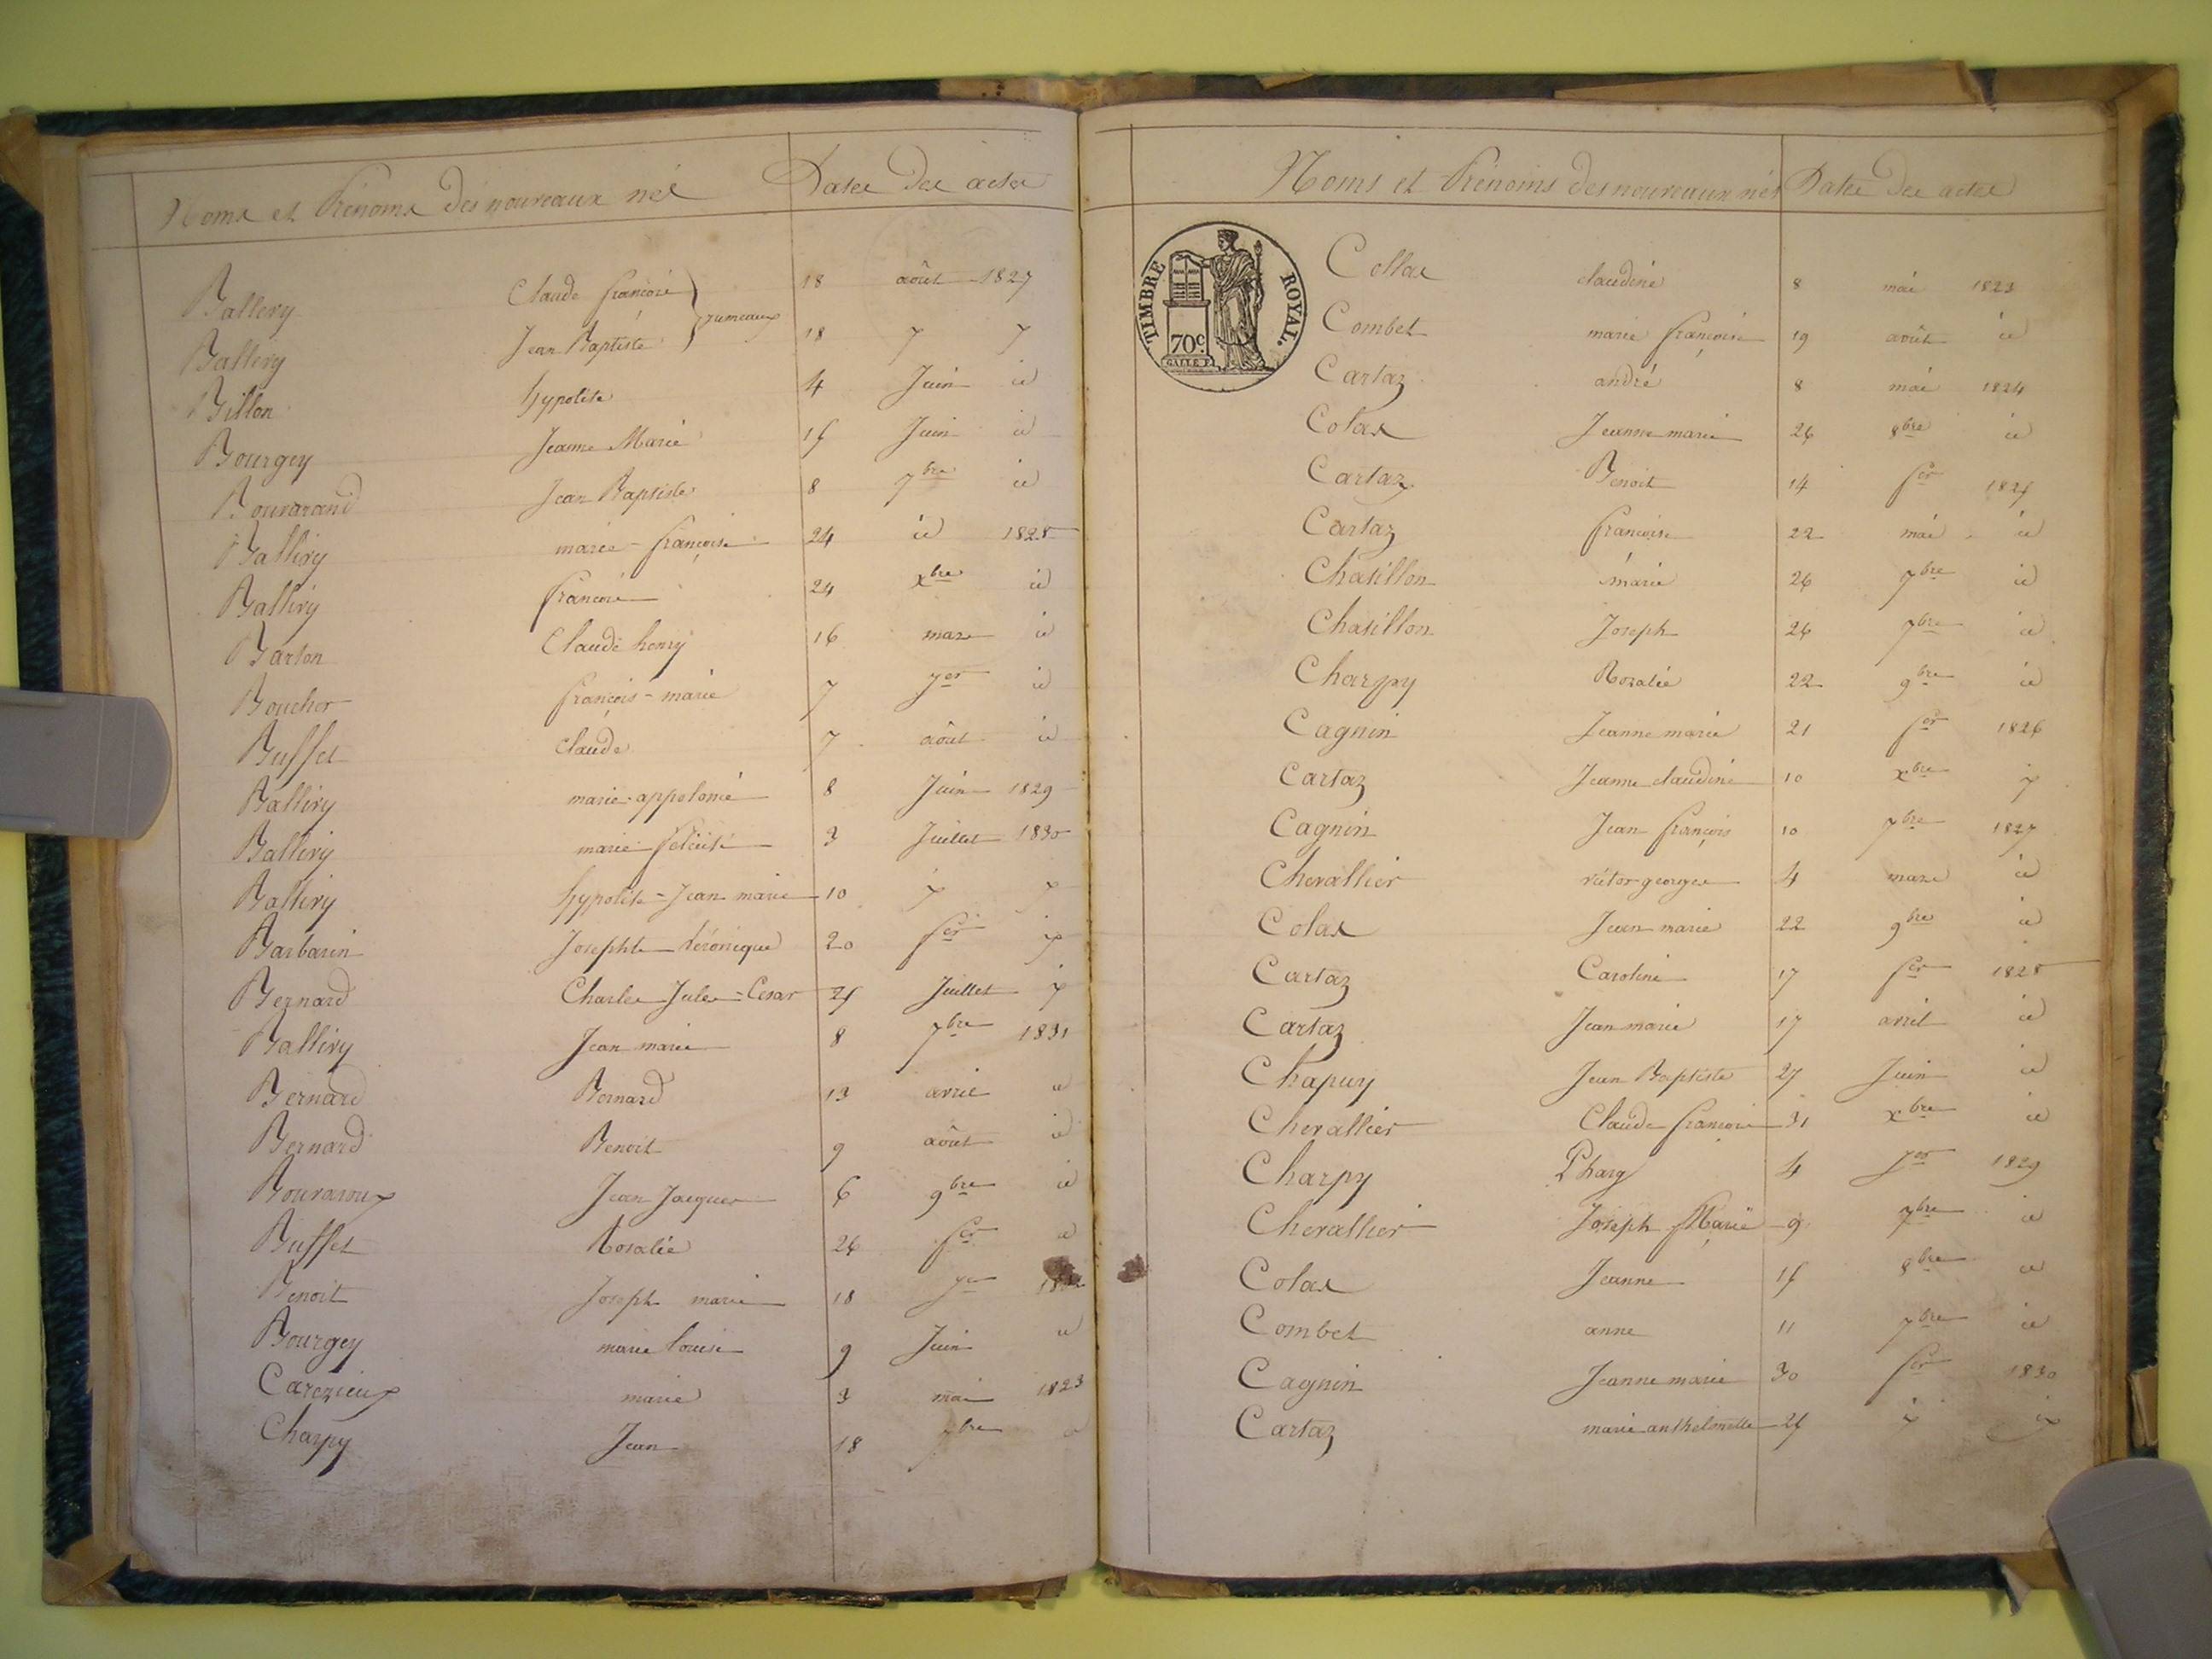 Noms et Prénoms des nouveaux nés Dates des actes
Ballivy Claude françois 18 août 1827
jumeaux
Ballivy Jean Baptiste 18 " "
Billon hypolite 4 Juin id
Bourgey Jeanne Marie 15 Juin id
Bouvarand Jean Baptiste 8 7bre id
Ballivy marie-françoise 24 id 1828
Ballivy françois 24 xbre id
Barton Claude henry 16 mars id
Boucher françois-marie 7 Jer id
Buffet claude 7 août id
Ballivy marie-appolonie 8 Juin 1829
Ballivy marie félicité 3 Juillet 1830
Ballivy hypolite-Jean marie 10 " "
Barbarin Josephte Véronique 20 fer "
Bernard Charles Jules-César 25 Juillet "
Ballivy Jean marie 8 7bre 1831
Bernard Bernard 13 avril id
Bernard Benoit 9 août id
Bouvaroux Jean Jacques 6 9bre id
Buffet Rosalie 26 fer id
Benoit Joseph marie 18 Jer
Bourgey marie louise 9 Juin id
Carezieux marie 3 mai 1823
Charpy Jean 18 7bre id
Noms et Prénoms des nouveaux nés Dates des actes
TIMBRE ROYAL.
70c.
Collas claudine 8 mai 1823
Combet marie françoise 19 août id
Cartaz andré 8 mai 1824
Colas Jeanne marie 26 8bre id
Cartaz Benoit 14 fer 1825
Cartaz françoise 22 mai id
Chatillon marie 26 7bre id
Chatillon Joseph 26 7bre id
Charpy Rosalie 22 9bre id
Cagnin Jeanne marie 21 fer 1826
Cartaz Jeanne claudine 10 xbre "
Cagnin Jean françois 10 7bre 1827
Chevallier victor georges 4 mars id
Colas Jean marie 22 9bre id
Cartaz Caroline 17 fer 1828
Cartaz Jean marie 17 avril id
Chapuy Jean Baptiste 27 Juin id
Chevallier Claude françois 31 xbre id
Charpy 4 Jer 1829
Chevallier Joseph Marie 9 7bre id
Colas Jeanne 15 8bre id
Combet anne 11 7bre id
Cagnin Jeanne marie 30 fer 1830
Cartaz marie anthelmette 25 " "